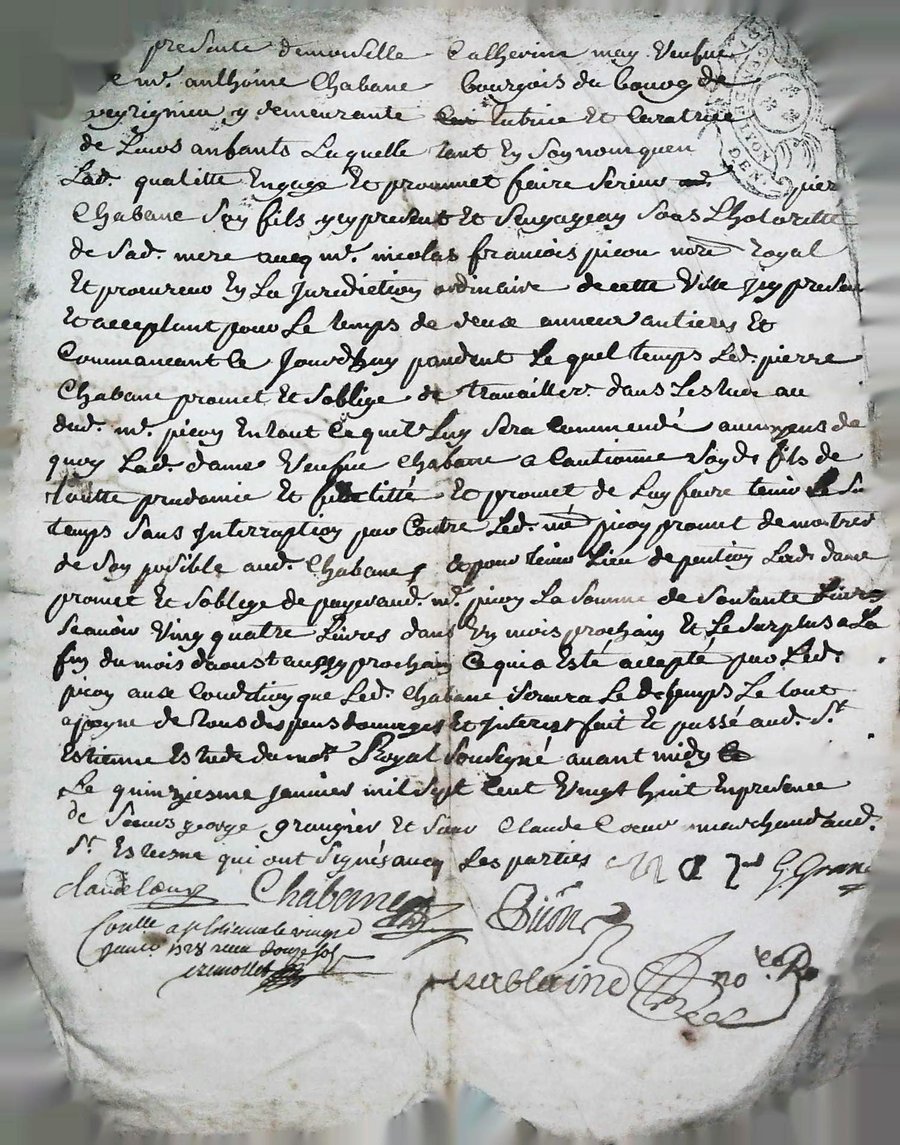 presente demoiselle Catherine may Veufue
de mr. anthoine Chabane bourgois du bourg de
veyrignieu y demeurante tutrice Et Curatrice
de Leurs anfants Laquelle tant En Son nom quen
Lad. qualitte Engage Et proummet faire Servir pier
Chabane Son fils ycy present Et Sengagean Sous Lhotoritte
de Sad. mere avecq mr. nicolas francois picon nore Royal
Et procureur En La Jurediction ordinaire de cette Ville Jcy presan
Et acceptant pour Le temps de deux anneés antieres Et
Commanceant Ce Jourdhuy pandent Lequel temps Led. pierre
Chabane promet Et Soblige de travailler dans Lestude
dud. mr. picon En tout Ce quil Luy Sera Commendé aumoyens de
quoy Lad. dame Veufue Chabane a Cautionne Sond. fils de
toutte prudomie Et fidelitté Et promet de Luy faire tenir Le Su
temps Sans Jnterruption par Contre Led. mr picon promet de montrer
de Son posible aud. Chabane, Et pour tenir Lieu de pention Lad. dame
promet Et Soblege de payer aud. mr. picon La Somme de Soutante Livres
Scauoir Vingt quatre Livres dans Un mois prochain Et Le Surplus a La
fin du mois daoust aussy prochain Ce qui a Esté accepté par Led.
picon aux Condition que Led. Chabane Le temps Le tout
a payne de tous despens domages Et Jnterest fait Et passé aud. St.
Estienne Estude du not. Royal Sousigné avant midy
Le quinziesme janvier mil Sept Cent Vingt huit En presence
de Sieurs george grangier Et Sieur Claude Coeur marchand aud.
St. Estiesne qui ont Signés avecq Les parties G. Gran
claude Coeur Chabanne
a St Etienne le vingt
1728 receu douze sols
no.re R.